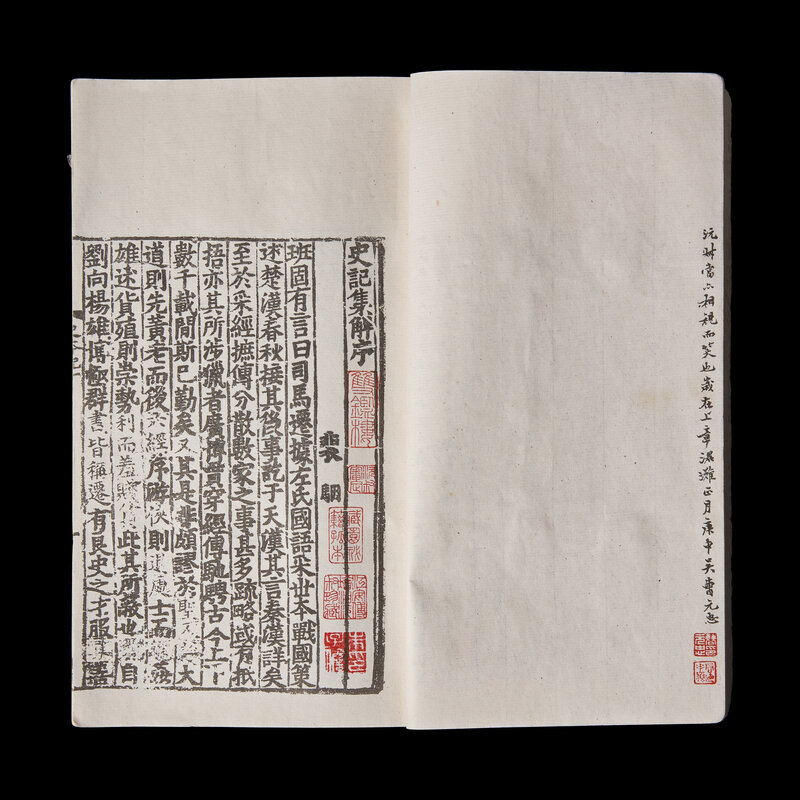 沅尗當亦相視而笑也歲在上章涒灘正月庚午吳曹元忠
史記集解序
雙鑑樓
藏園秘籍孤本
裴駰
班固有言曰司馬遷據左氏國語采世本戰國策
述楚漢春秋接其後事訖于天漢其言秦漢詳矣
至於采經摭傳分散數家之事甚多疏略或有抵
捂亦其所涉獵者廣博貫穿經傳馳騁古今上下
數千載閒斯已勤矣又其是非頗謬於聖大
道則先黃老而後六經序游俠則退處士而姦
雄述貨殖則崇勢利而羞賤貧此其所蔽也自
劉向楊雄博極群書皆稱遷有良史之才服善